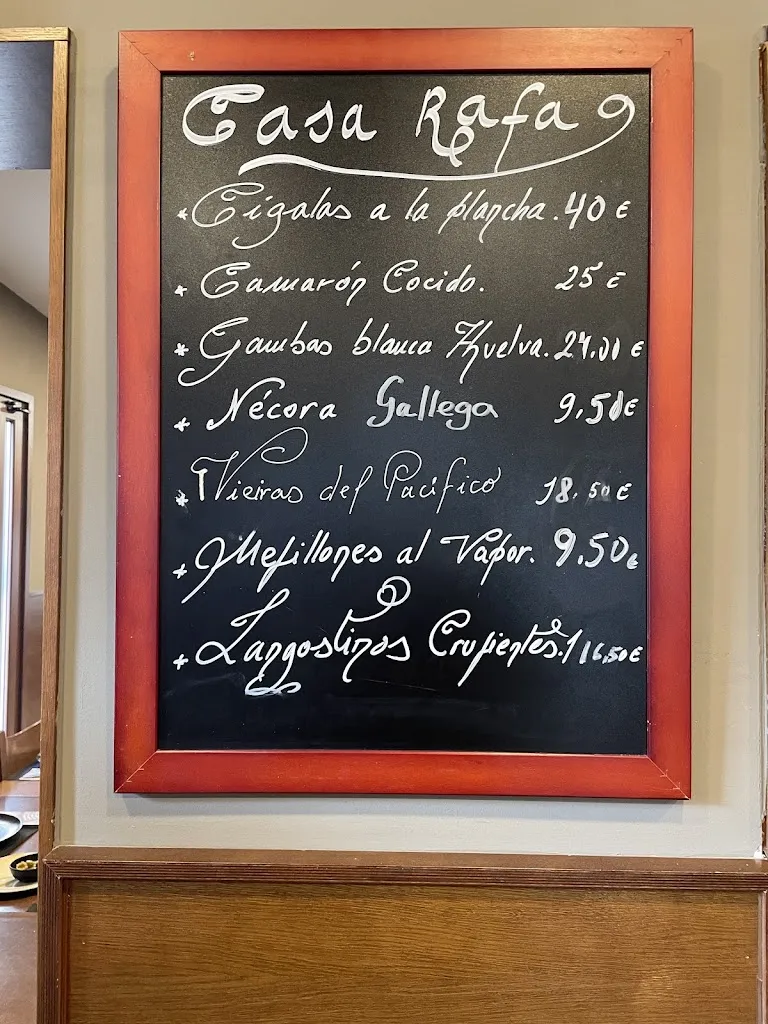 Casa Rafa
* Cigalas a la plancha. 40 €
* Camarón Cocido. 25 €
* Gambas blanca Huelva. 24.00 €
* Nécora Gallega 9,50€
* Vieiras del Pacífico 18,50 €
* Mejillones al Vapor. 9.50€
* Langostinos Crujientes. 16,50€